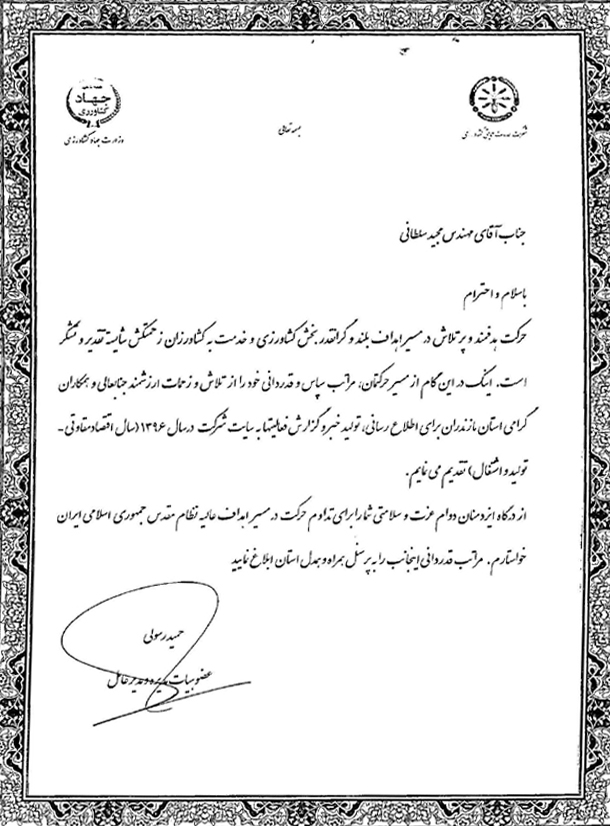 جهاد
کشاورزی
وزارت جهاد کشاورزی
بسمه تعالی
شرکت خدمات حمایتی کشاورزی
جناب آقای مهندس مجید سلطانی
باسلام و احترام
حرکت هدفمند و پر تلاش در مسیر اهداف بلند و گرانقدر بخش کشاورزی و خدمت به کشاورزان زحمتکش شایسته تقدیر و تشکر
است. اینک در این گام از مسیر حرکتمان، مراتب سپاس و قدردانی خود را از تلاش و زحمات ارزشمند جنابعالی و همکاران
گرامی استان مازندران برای اطلاع رسانی، تولید خبر و گزارش فعالیتها به سایت شرکت در سال ۱۳۹۶ (سال اقتصاد مقاومتی -
تولید و اشتغال) تقدیم می نمایم.
از درگاه ایزد منان دوام عزت و سلامتی شما را برای تداوم حرکت در مسیر اهداف عالیه نظام مقدس جمهوری اسلامی ایران
خواستارم. مراتب قدردانی اینجانب را به پرسنل همراه و همدل استان ابلاغ نمایید
حمید رسولی
عضو هیات مدیره و مدیر عامل